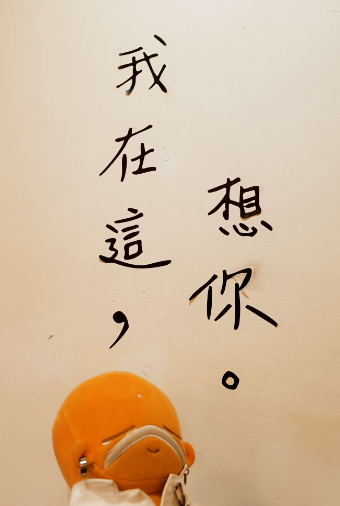 我在這，
想你。